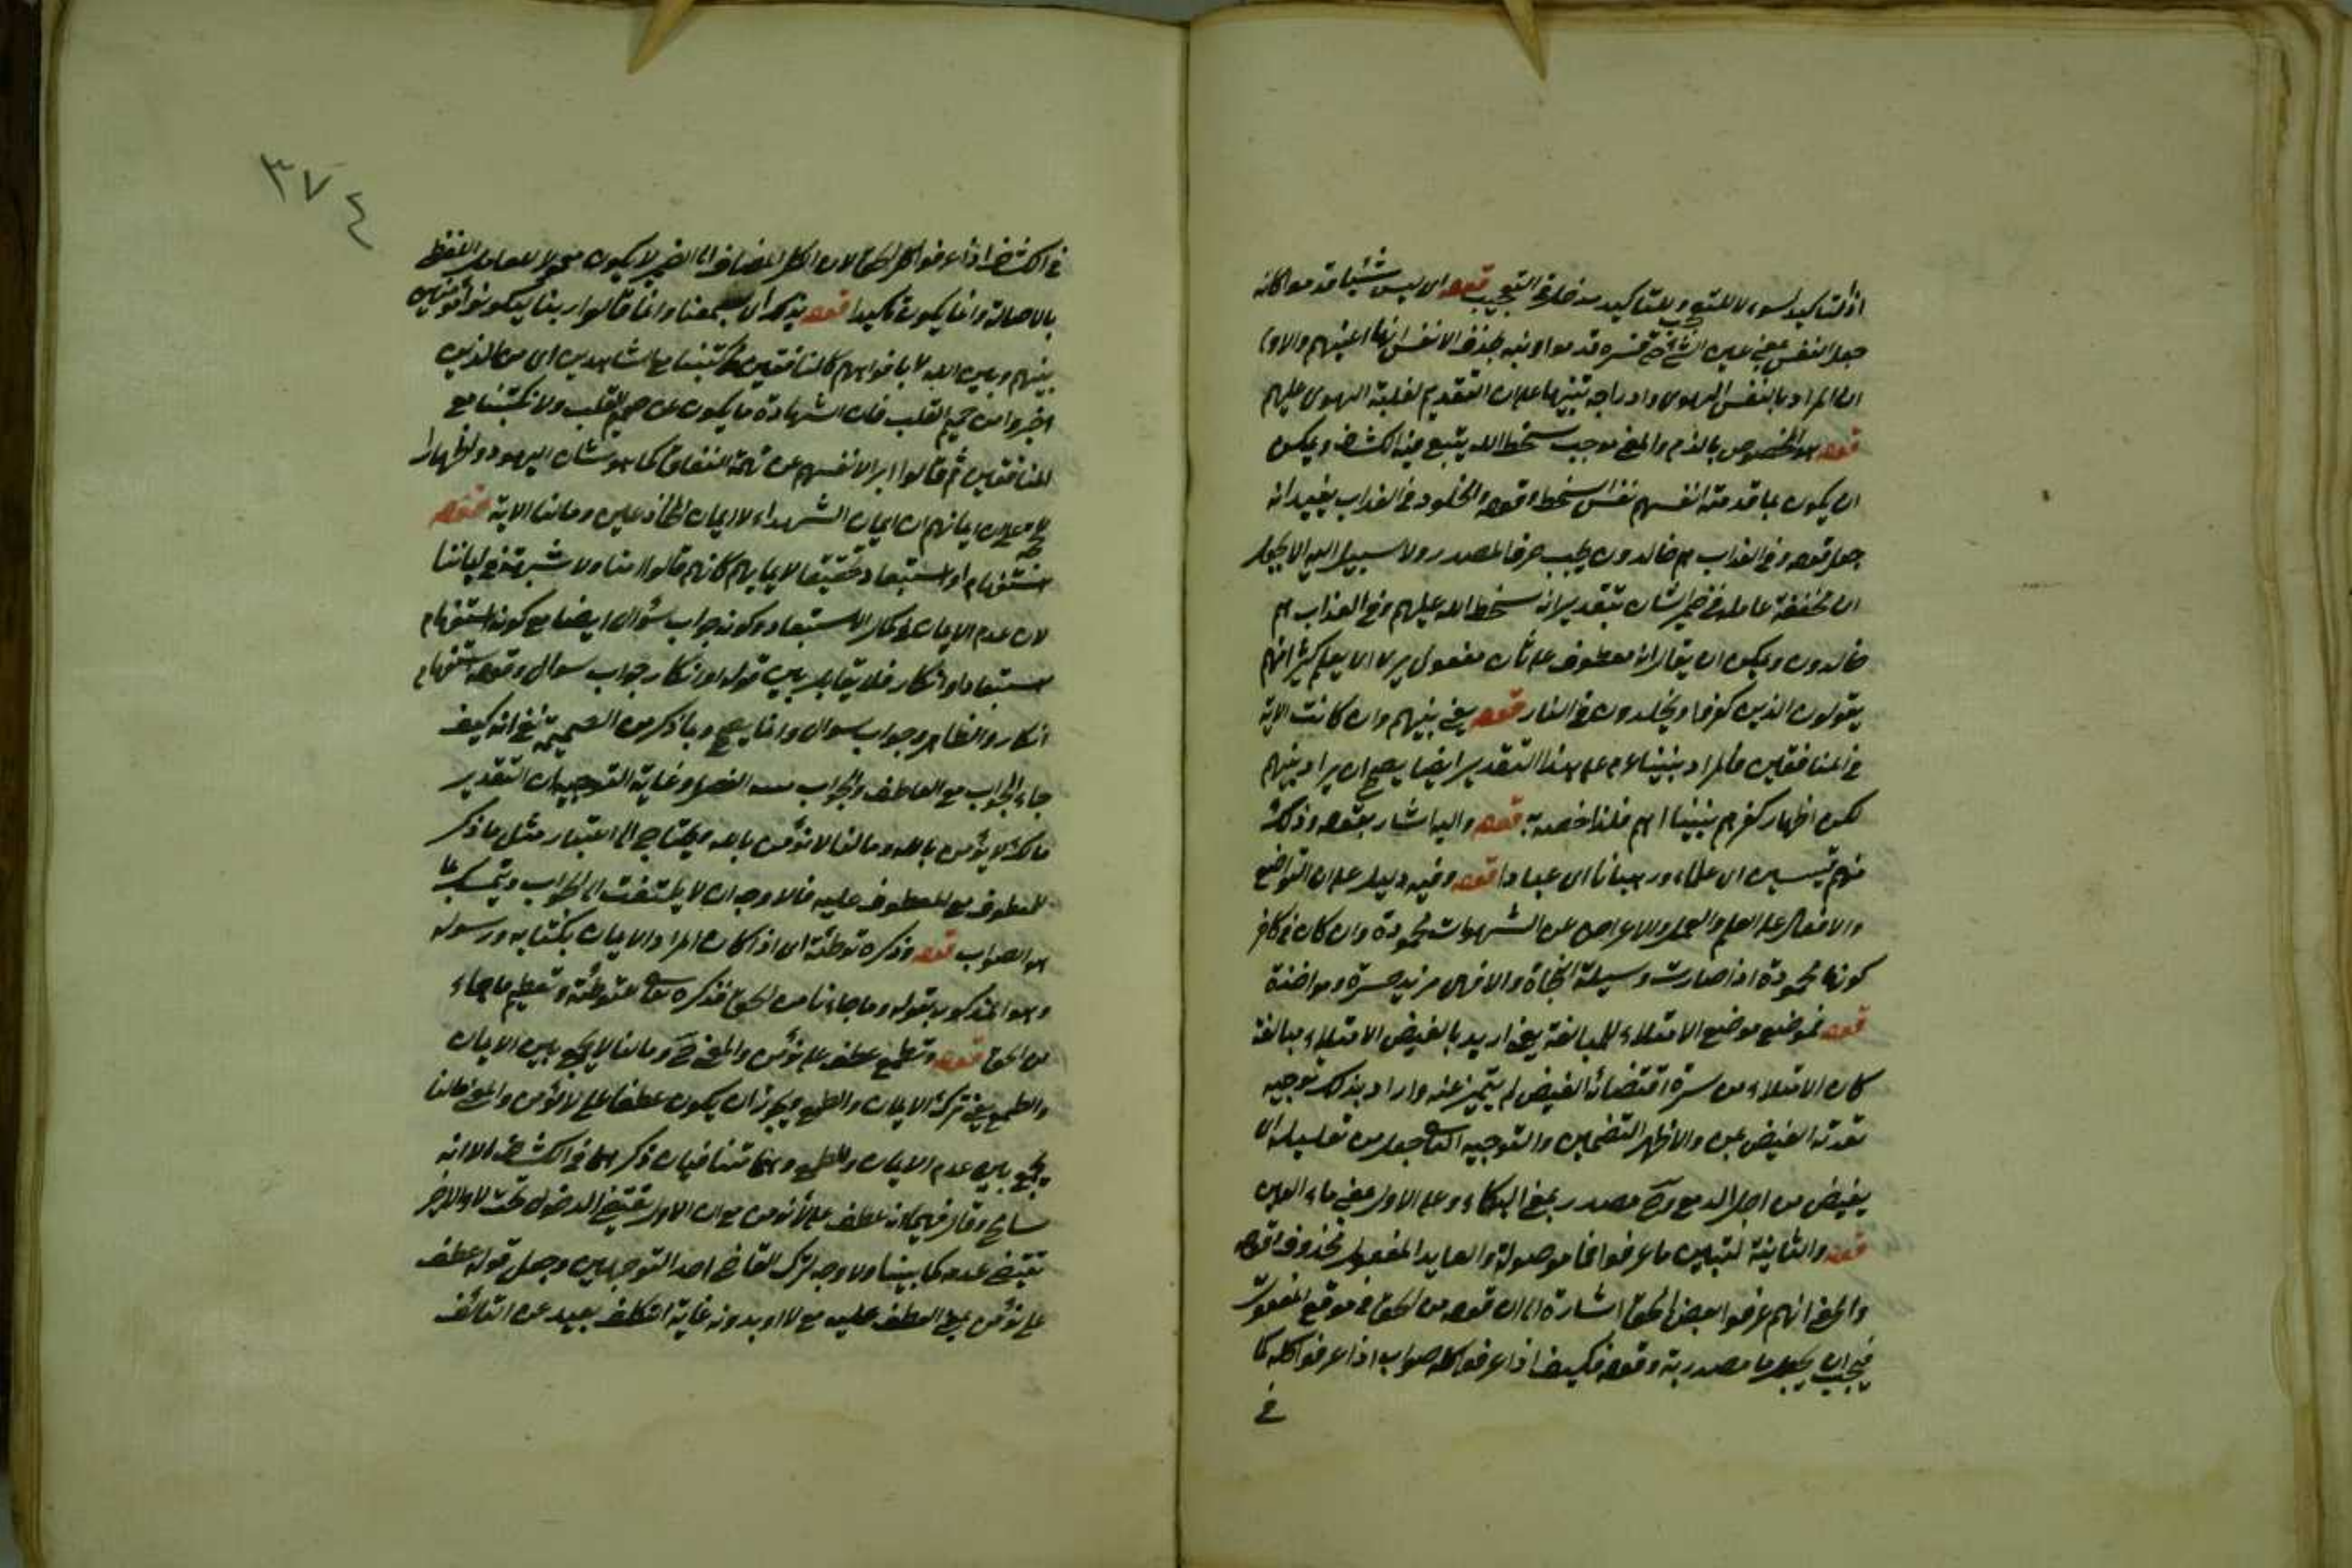 اذ التاكيد لسوء لا للتعجب وللتاكيد مدخل في التعجب قوله اى ليس شيئا قدموا كانه
جعل النفس بمعنى عين الشئ فسره قدموا ونبه بحذف الانفس انها اعينهم والاولى
ان المراد بالنفس الهوى وادراجه تنبيها على ان التقديم لغلبة الهوى عليهم
قوله هو المخصوص بالذم والمعنى موجب سخط الله يتبع فيه الكشاف ويمكن
ان يكون ما قدمته انفسهم نفس سخطه وقوله والخلود في العذاب يفيد انه
جعل قوله وفي العذاب هم خالدون بحسب حرف المصدر ولا سبيل اليه الا بجعل
ان مخففة عاملة في ضمير الشان بتقدير انه سخط الله عليهم وفي العذاب هم
خالدون ويمكن ان يقال انه معطوف على ثان مفعولى يرى اى يعلم كثيرا منهم
يتولون الذين كفروا ويخلدون في النار قوله يعنى نبيهم وان كانت الاية
في المنافقين فالمراد نبينا عم على هذا التقدير ايضا يصح ان يراد نبيهم
لكن اظهار كفرهم بنبينا اهم فلذا خصه به قوله واليه اشار بقوله وذلك
منهم قسيسين اى علماء ورهبانا اى عبادا قوله وفيه دليل على ان التواضع
والاقبال على العلم والعمل والاعراض عن الشهوات محمودة وان كان في كافر
كونها محمودة اذا صارت وسيلة النجاة والا فهى مزيد حسرة ومواخذة
قوله فوضع موضع الامتلاء للمبالغة يعنى اريد بالفيض الامتلاء مبالغة
كان الامتلاء من سرة اقتضائه الفيض لم يتميز عنه واراد بذلك توجيه
تعدية الفيض بمن والاظهر التضمين والتوجيه الثانى جعل من تعليلية اى
يفيض من اجل الدمع وح مصدر بمعنى البكاء وعلى الاول بمعنى ماء العين
قوله والثانية لتبيين ما عرفوا فما موصولة والعايد المفعول محذوف وقوله
والمعنى انهم عرفوا بعض الحق اشارة الى ان قوله من الحق في موقع المفعول
فيجب ان يجعل ما مصدرية وقوله فكيف اذا عرفوا كله صواب اذا عرفوا كله كما
في
٣٧٤
في الكشاف اذا عرفوا كل الحق لان الكل المضاف الى الضمير لا يكون معمولا للعامل اللفظى
بالاصالة وانما يكون تاكيدا قوله بذلك اى بسمعنا وانما قالوا ربنا ليكونوا مؤمنين
بينهم وبين الله لا بافواههم كالمنافقين فاكتبنا مع الشاهدين اى من الذين
اخبروا من صميم القلب فان الشهادة ما يكون عن صميم القلب ولا تكتبنا مع
المنافقين ثم قالوا ابراء لانفسهم عن تهمة النفاق كما هو شان اليهود واظهارا
على ان ايمانهم ان ايمان الشهداء لا ايمان المخادعين ومالنا الاية قوله
استفهام او استبعاد تحقيقا لايمانهم كانهم قالوا امنا ولا شبهة في ايماننا
لان عدم الايمان على كمال الاستبعاد وكونه جواب سؤال ايضا مع كونه استفهام
استبعاد او انكار فلا يقابل بين قوله او انكار جواب سوال وقوله استفهام
انكار والظاهر وجواب سوال وانما يصح وما ذكر من الصميم نعم انه كيف
جاء الجواب مع العاطف والجواب الفصل وغاية التوجيه ان التقدير
مالك لا تؤمن بالله ومالنا لا نؤمن بالله ويحتاج الى اعتبار مثل ما ذكر
المعطوف مع المعطوف عليه فالاوجه ان لا يلتفت الى الجواب ويتمسك بما
هو الصواب قوله وذكره توطئة اى اذا كان المراد الايمان بكتابه ورسوله
وهو المذكور بقوله وما جاءنا من الحق فذكره تعالى توطئة وتعظيم ما جاء
من الحق قوله ونطمع عطف على نؤمن والمعنى ح ومالنا لا نجمع بين الايمان
والطمع يعنى ترك الايمان والطمع ويجوز ان يكون عطفا على لا نؤمن والمعنى مالنا
نجمع بين عدم الايمان والطمع وهما متنافيان ذكرهما في الكشاف الا انه
سامح وقال فيهما انه عطف على لا نؤمن مع ان الاول يقتضى الدخول تحت لا والاخر
يقتضى عدمه كما بينا ولا وجه لترك القاضى احد التوجيهين وجعل قوله عطف
على نؤمن بمعنى العطف عليه مع لا او بدونه غاية التكلف بعيد عن التالف